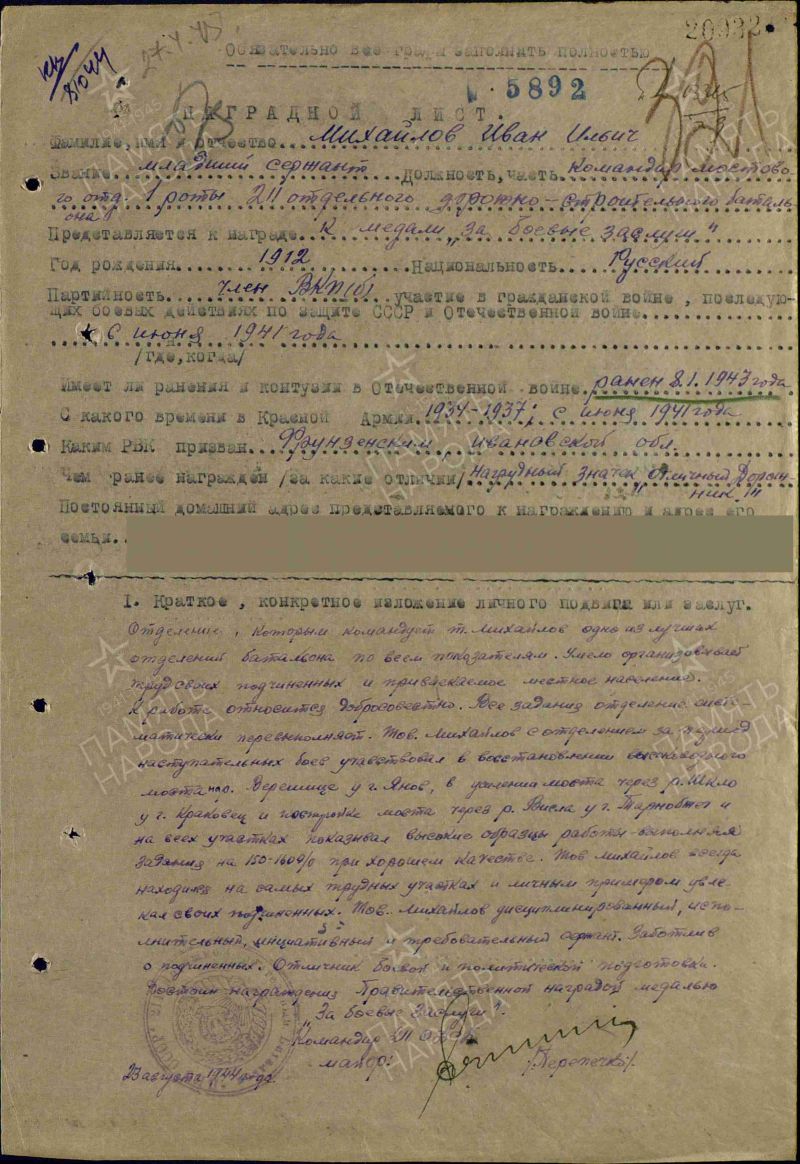 20932
27.4.45
Обязательно все графы заполнить полностью
5892
НАГРАДНОЙ ЛИСТ.
Фамилие, имя и отчество... Михайлов Иван Ильич
Звание... младший сержант Должность, часть. Командир мостово-
го отд. 1 роты 211 отдельного дорожно-строительного баталь-
она
Представляется к награде... к медали „За боевые заслуги"
Год рождения... 1912 Национальность... Русский
Партийность... член ВКП(б) участие в гражданской войне, последую-
щих боевых действиях по защите СССР и Отечественной войне...
с июня 1941 года
/где, когда/
Имеет ли ранения и контузии в Отечественной войне. ранен 8.1.1943 года
С какого времени в Красной Армии 1934-1937; с июня 1941 года
Каким РВК призван. Фрунзенским, Ивановской обл.
Чем ранее награжден /за какие отличия/ Нагрудный значок „Отличный Дорож-
ник"
Постоянный домашний адрес представляемого к награждению и адрес его
семьи.
I. Краткое, конкретное изложение личного подвига или заслуг.
Отделение, которым командует т. Михайлов одно из лучших
отделений батальона по всем показателям. Умело организовывает
труд своих подчиненных и привлекаемое местное население.
К работе относится добросовестно. Все задания отделение систе-
матически перевыполняет. Тов. Михайлов с отделением за период
наступательных боев участвовал в восстановлении высоководного
моста ч/р. Верешице у г. Янов, в усилении моста через р. Шкло
у г. Краковец и постройке моста через р. Висла у г. Тарнобжег и
на всех участках показывал высокие образцы работы-выполняя
задания на 150-160% при хорошем качестве. Тов Михайлов всегда
находился на самых трудных участках и личным примером увле-
кал своих подчиненных. Тов. Михайлов дисциплинированный, испо-
лнительный, инициативный и требовательный сержант. Заботлив
о подчиненных. Отличник боевой и политической подготовки.
Достоин награждения Правительственной наградой медалью
„За боевые заслуги".
Командир 211 ОДСБ
майор: /Перепечко/.
23 августа 1944 года.
ПАМЯТЬ НАРОДА